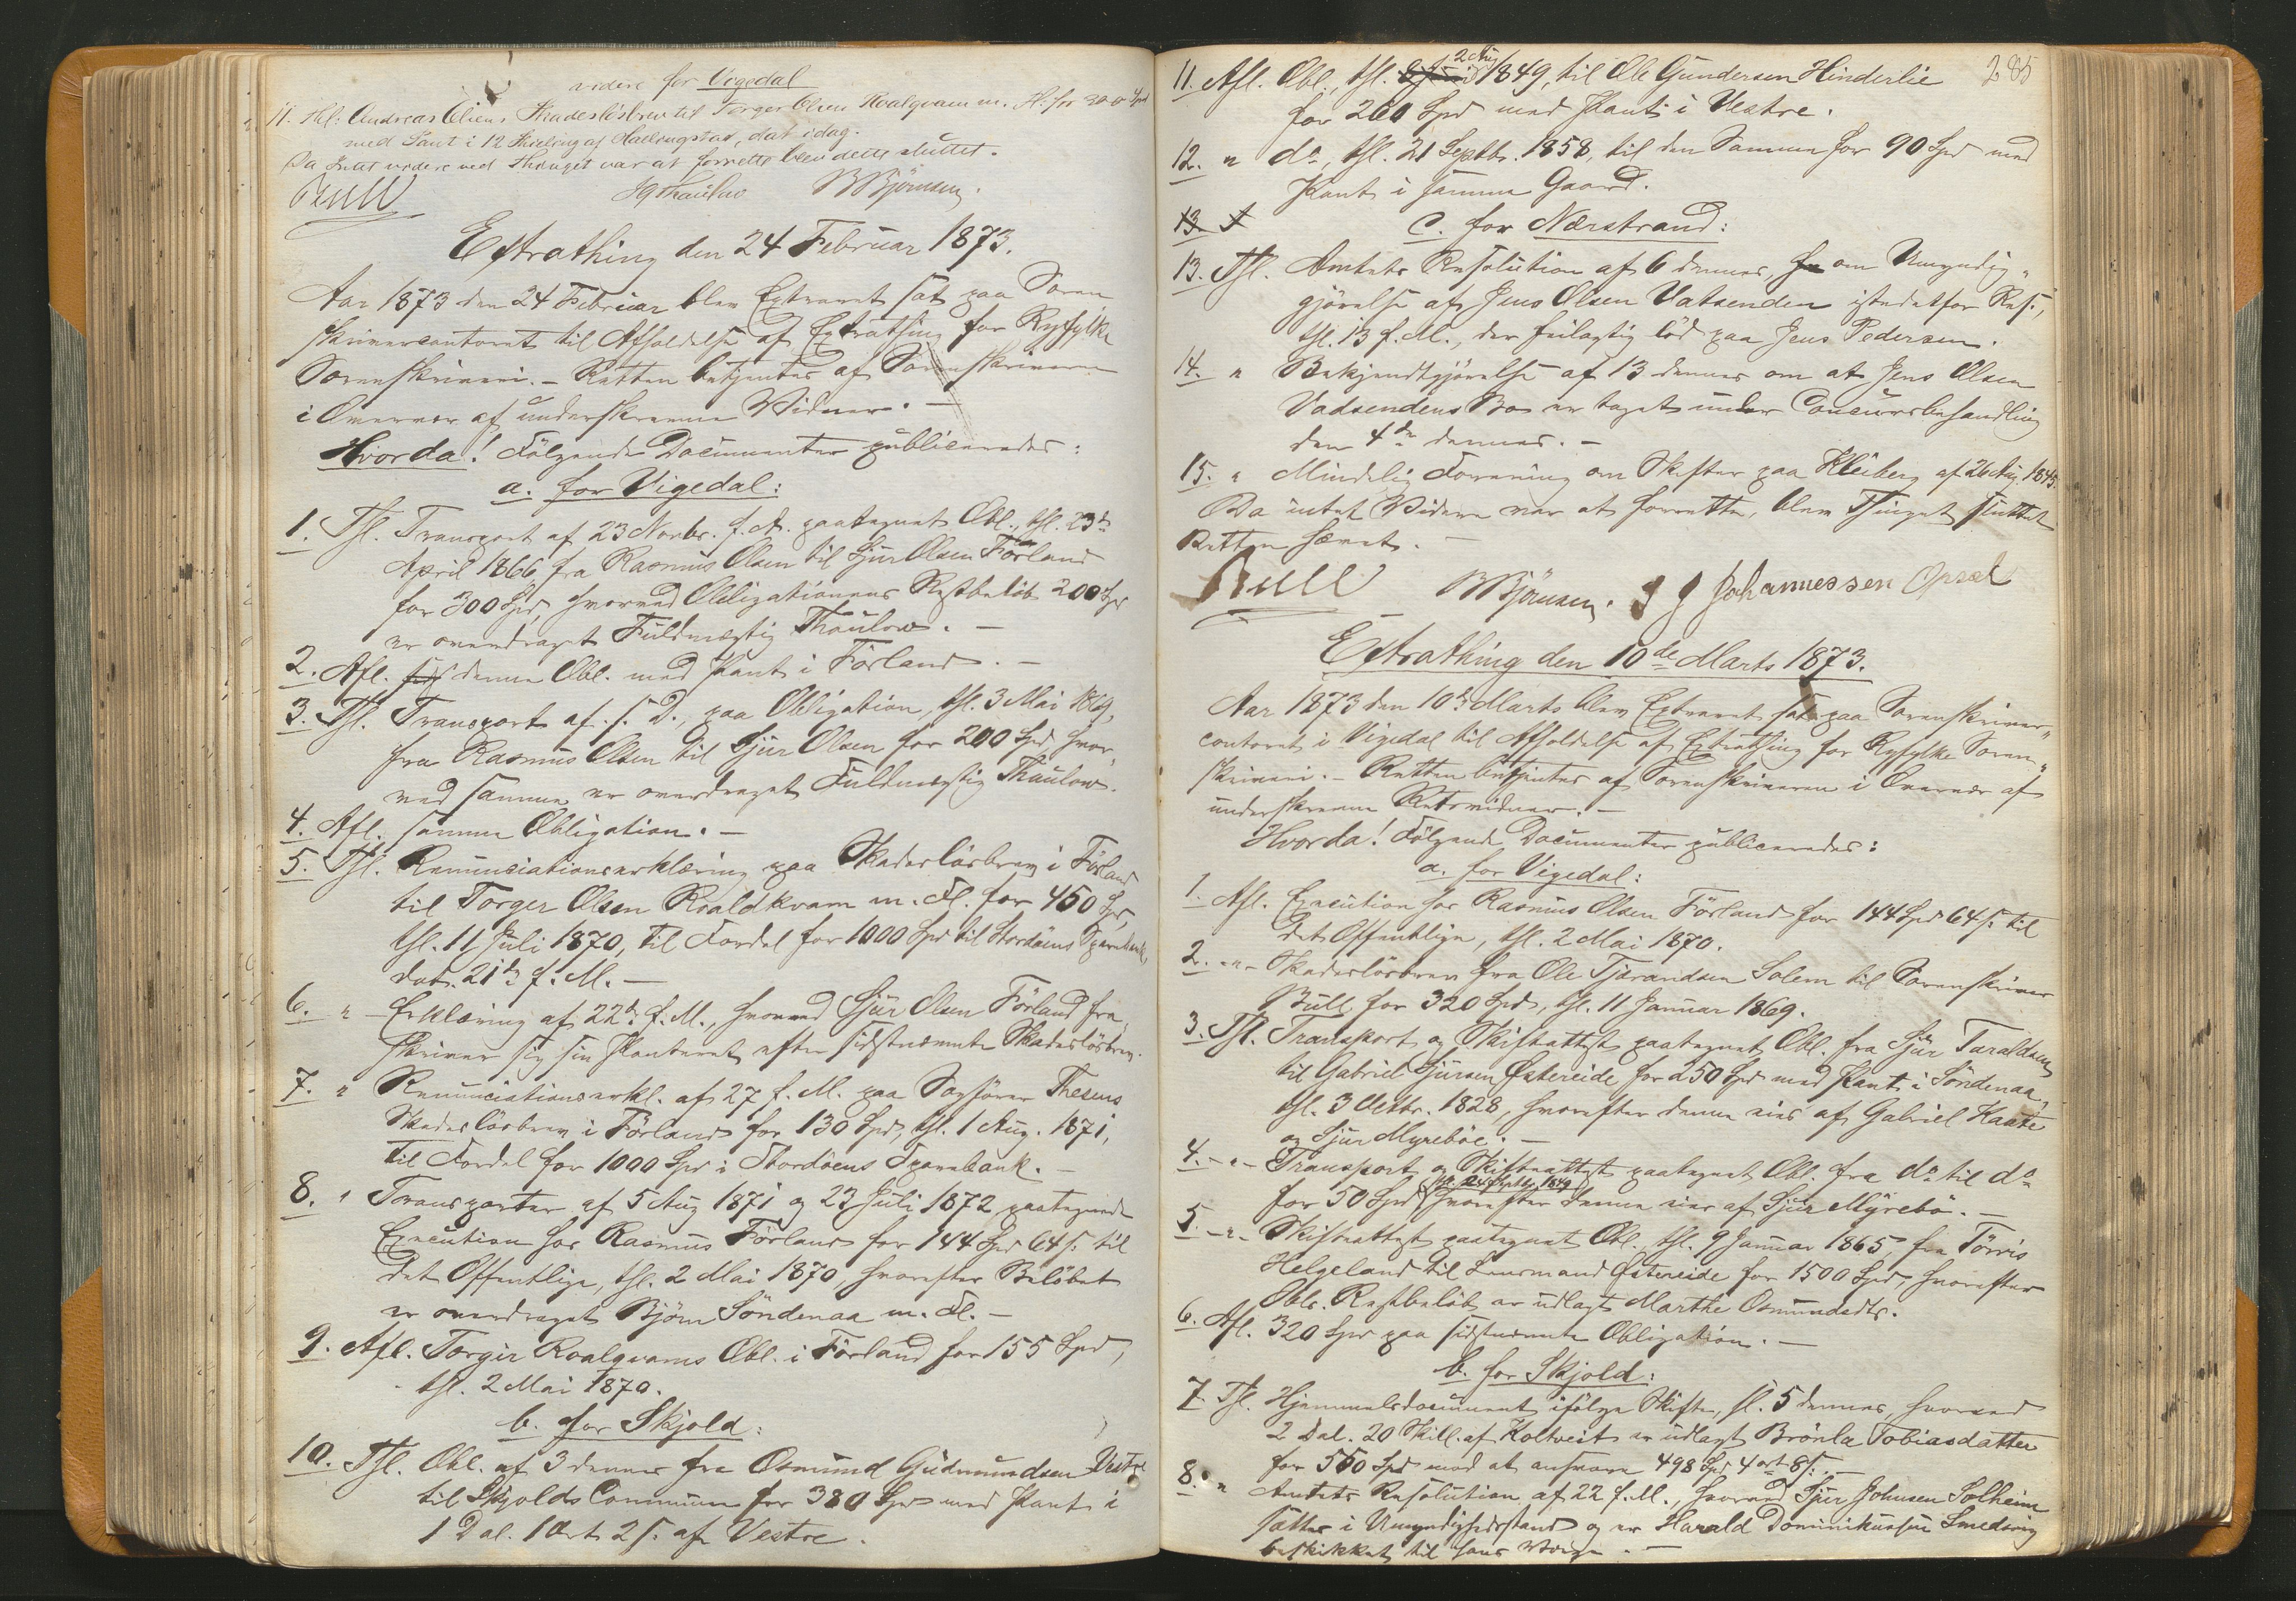 videre for Vigedal
11. Thl: Andreas Olsens Skadesløsbrev til Torger Olsen Roalqvam m. Fl. for 300 Spd
med Pant i 12 Skilling af Hallingstad, dat. idag.
Da Intet videre ved Thinget var at forrette blev dette sluttet.
Bull Thaulow BBjörnsen.
Extrathing den 24 Februar 1873.
Aar 1873 den 24 Februar blev Extraret sat paa Soren
skrivercontoret til Afholdelse af Extrathing for Ryfylke
Sorenskriveri. – Retten betjentes af Sorenskriveren
i Overvær af underskrevne Vidner. –
Hvorda! Følgende Documenter publiceredes:
a. for Vigedal:
1. Thl. Transport af 23 Novbr. f. A. paategnet Obl., thl. 23de
April 1866 fra Rasmus Olsen til Sjur Olsen Förland
for 300 Spd, hvorved Obligationens Restbeløb 200 Spd
er overdraget Fuldmægtig Thaulow. –
2. Afl. denne Obl. med Pant i Förland. –
3. Thl. Transport af s. D. paa Obligation, thl. 3 Mai 1869,
fra Rasmus Olsen til Sjur Olsen for 200 Spd, hvor„
ved samme er overdraget Fuldmægtig Thaulow.
4. Afl. samme Obligation. –
5. Thl. Renunciationserklæring paa Skadesløsbrev i Förland
til Torger Olsen Roaldkvam m. Fl. for 450 Spd,
thl. 11 Juli 1870, til Fordel for 1000 Spd til Stordøens Sparebank,
dat. 21de f. M. –
6. " – Erklæring af 22de f. M., hvorved Sjur Olsen Förland fra
skriver sig sin Panteret efter sidstnævnte Skadesløsbrev.
7. " Renunciationserkl. af 27 f. M. paa Sagfører Thesens
Skadesløsbrev i Förland for 130 Spd, thl. 1 Aug. 1871,
til Fordel for 1000 Spd i Stordøens Sparebank. –
8. " Transporter af 5 Aug 1871 og 23 Juli 1872 paategnede
Execution hos Rasmus Förland for 144 Spd 64 s. til
det Offentlige, thl. 2 Mai 1870, hvorefter Beløbet
er overdraget Björn Söndenaa m. Fl. –
9. Afl. Torger Roalqvams Obl. i Förland for 155 Spd,
thl. 2 Mai 1870.
b. for Skjold:
10. Thl. Obl. af 3 dennes fra Osmund Gudmundsen Vestre
til Skjolds Commune for 380 Spd med Pant i
1 Dal. 1 Ort 2 s. af Vestre.
285
11. Afl. Obl., thl. 2 Aug 1849, til Ole Gundersen Hinderlie
for 260 Spd med Pant i Vestre.
12. " do, thl. 21 Septbr. 1858, til den Samme for 90 Spd med
Pant i samme Gaard.
13.
c. for Nærstrand:
13. Thl. Amtets Resolution af 6 dennes, om Umyndig„
gjørelse af Jens Olsen Vatsenden istedetfor Res.,
thl. 13 f. M., der feilagtig lød paa Jens Pedersen.
14. " Bekjendtgjørelse af 13 dennes om at Jens Olsen
Vadsendens Bo er taget under Concursbehandling
den 4de dennes. –
15. " Mindelig Forening om Skifter paa Kleiberg af 26 Aug. 1845.
Da intet Videre var at forrette, blev Thinget sluttet
Retten hævet. –
Bull BBjörnsen. J J Johannessen Opsal
Extrathing den 10de Marts 1873.
Aar 1873 den 10de Marts blev Extraret sat paa Sorenskriver„
contoret i Vigedal til Afholdelse af Extrathing for Ryfylke Soren„
skriveri. – Retten betjentes af Sorenskriveren i Overvær af
underskrevne Retsvidner. –
Hvorda! Følgende Documenter publiceredes:
a. for Vigedal:
1. Afl. Execution hos Rasmus Olsen Förland for 144 Spd 64 s. til
det Offentlige, thl. 2 Mai 1870.
2. -"- Skadesløsbrev fra Ole Tjerandsen Solem til Sorenskriver
Bull for 320 Spd, thl. 11 Januar 1869.
3. Thl. Transport og Skifteattest paategnet Obl. fra Sjur Taraldsen
til Gabriel Sjursen Østereide for 250 Spd med Pant i Söndenaa,
thl. 3 Octbr. 1828, hvorefter denne eies af Gabriel Kaate
og Sjur Myrebøe. –
4. -"- Transport og Skifteattest paategnet Obl. fra do til do
for 50 Spd, thl. Septbr. 1849, hvorefter denne eies af Sjur Myrebø. –
5. -"- Skifteattest paategnet Obl. thl. 9 Januar 1865, fra Törris
Helgeland til Lensmand Østereide for 1500 Spd, hvorefter
Obls. Restbeløb er udlagt Marthe Osmundsdtr.
6. Afl. 320 Spd paa sidstnævnte Obligation. –
b. for Skjold:
7. Thl. Hjemmelsdocument ifølge Skifte, sl. 5 dennes, hvorved
2 Dal. 20 Skill. af Koltveit er udlagt Brönla Tobiasdatter
for 550 Spd mod at ansvare 498 Spd 4 ort 8 s. –
8. " Amtets Resolution af 22 f. M., hvorved Sjur Johnsen Solheim
sættes i Umyndighedsstand og er Harald Dominikussen Smedsvig
beskikket til hans Værge. –